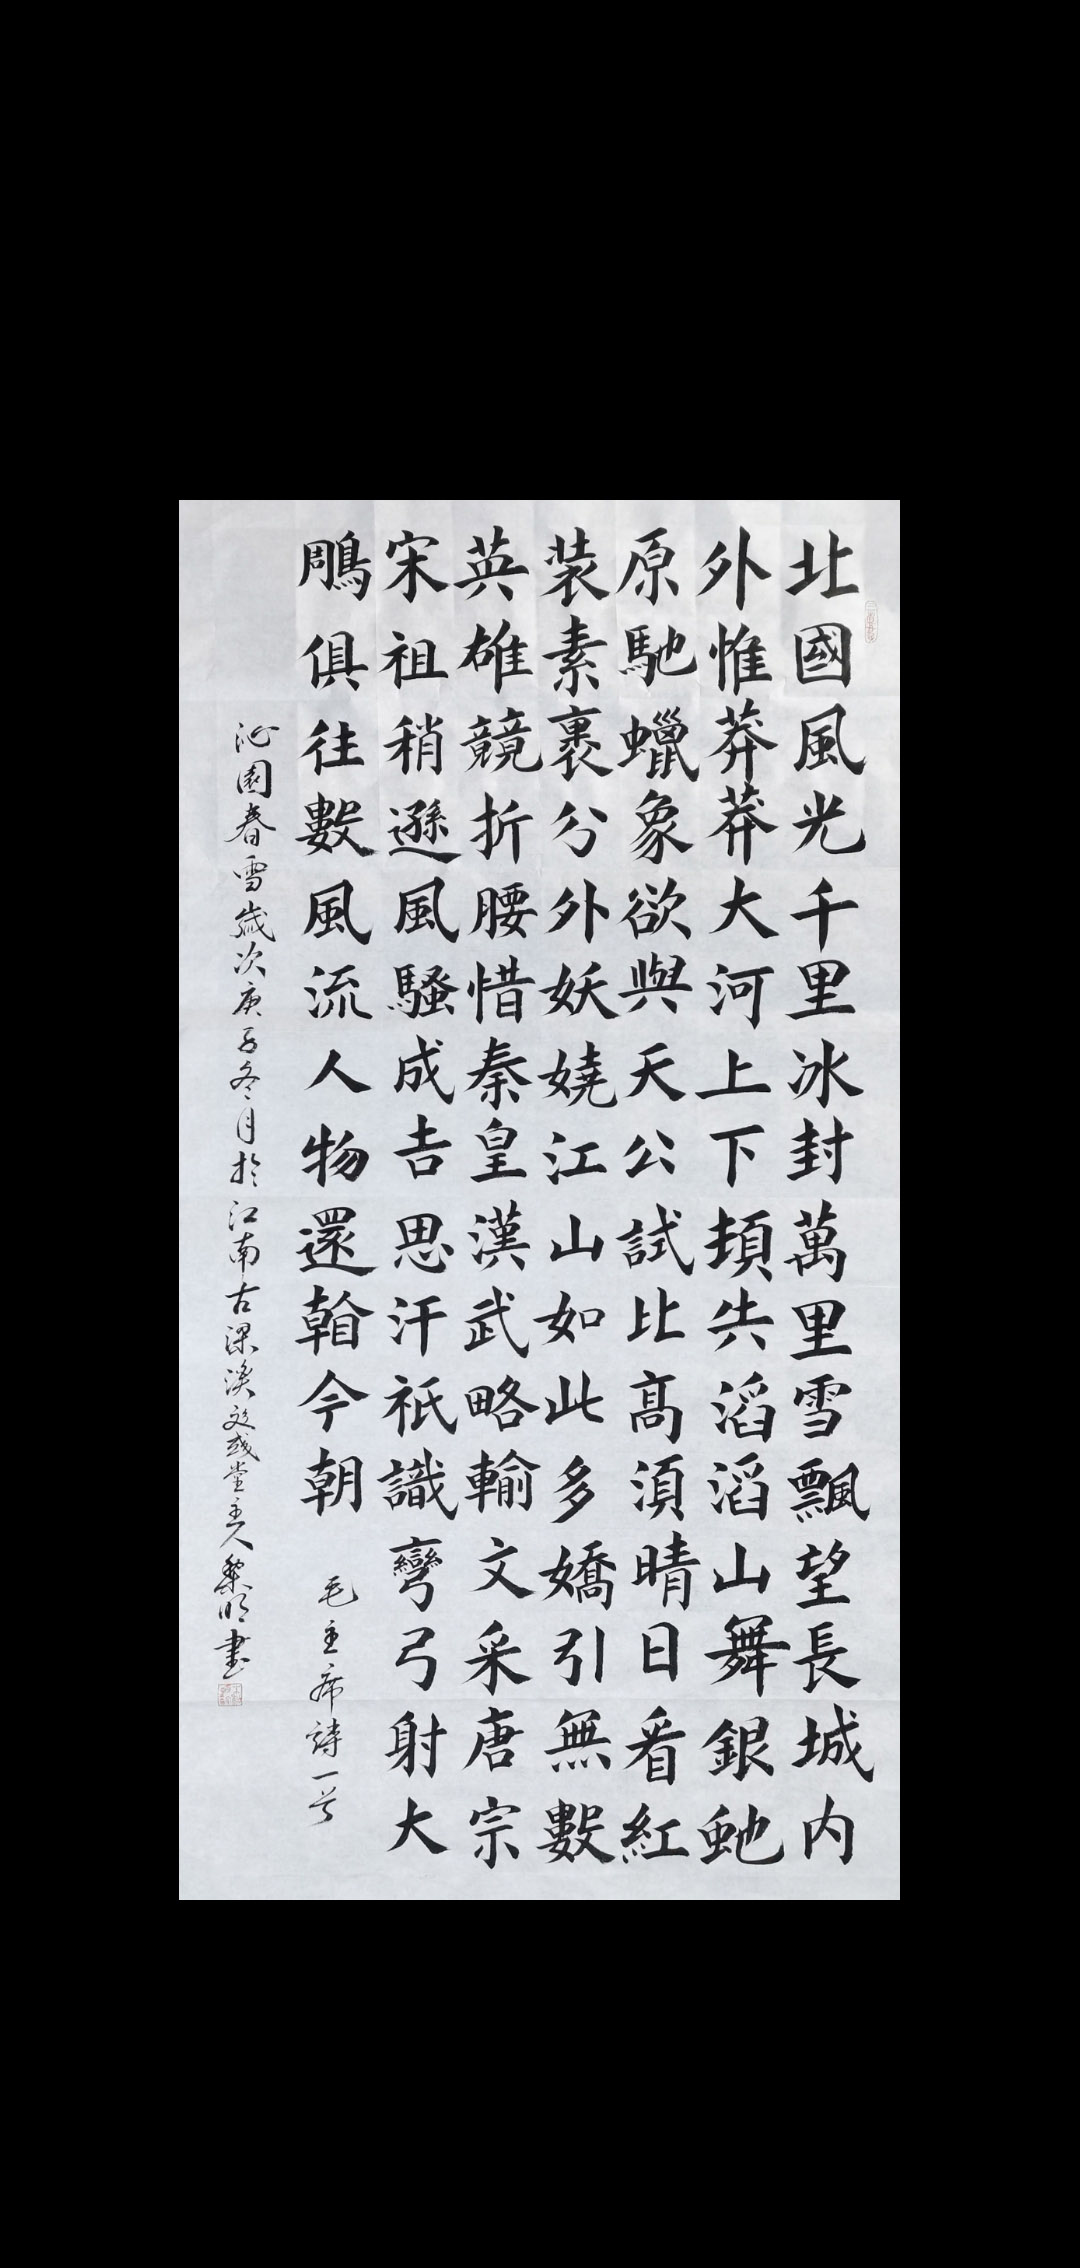 北國風光千里冰封萬里雪飄望長城内
外惟莽莽大河上下頓失滔滔山舞銀虵
原馳蠟象欲與天公試比高須晴日看紅
装素裹分外妖嬈江山如此多嬌引無數
英雄競折腰惜秦皇漢武略輸文采唐宗
宋祖稍遜風騷成吉思汗祇識彎弓射大
鵰俱往數風流人物還看今朝
毛主席詩一首
沁園春雪歲次庚子冬月於江南古梁溪堂主人黎明書